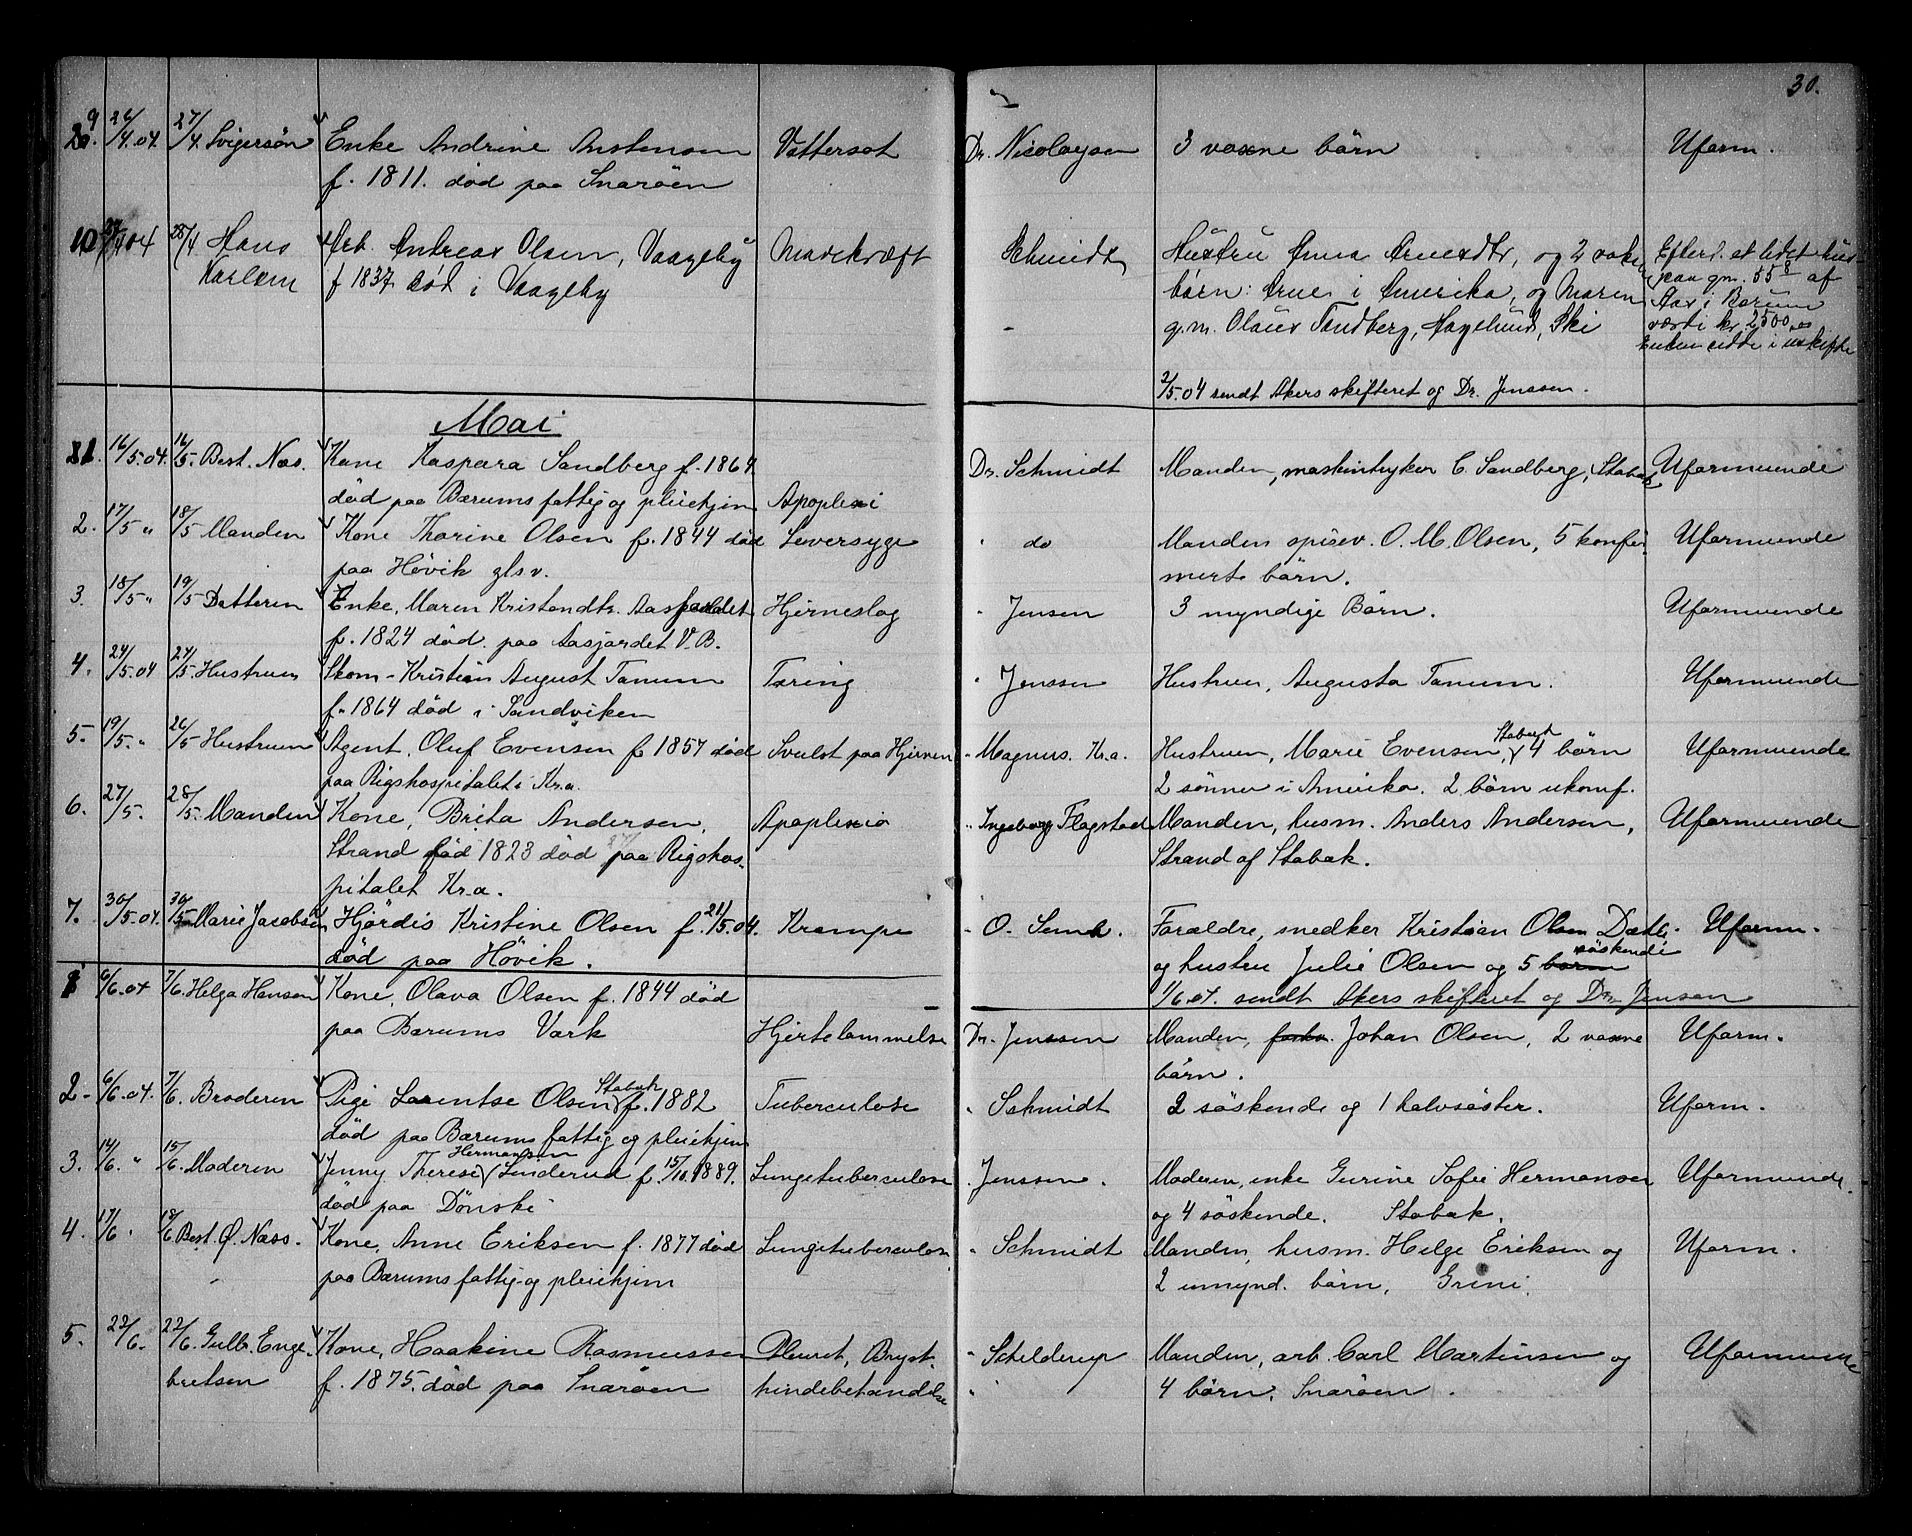 30.
9. 26/4.04 27/4. Svigersøn Enke Andrine Anstensen Vattersot Dr. Nicolaysen 3 voxne börn Uform.
f. 1811. död paa Snaröen
10 27/4 04 28/4 Hans Arb. Andreas Olsen, Vaageby Mavekræft Schmidt Hustru Anna Arnesdtr, og 2 voksne Efterl. et lidet hus
Karlsen f 1837 död i Vaageby börn: Arne i Amerika, og Maren paa gn. 55 8 af
g.m. Olaus Sandberg, Hagelund, Ski Aas i Bærum
værdi kr. 2500,00
Enken sidde i uskifte
2/5.04 sendt Akers skifteret og Dr. Jenssen.
Mai
1. 16/5.04. 16/5. Best. Næs. Kone Kaspara Sandberg f. 1864 Dr. Schmidt Manden, maskintrykker C. Sandberg, Stabæk Uformuende
död paa Bærums fattig og pleiehjem Apoplexi
2. 17/5 " 18/5 Manden Kone Thorine Olsen f. 1844 död Leversyge " do Manden spisev. O. M. Olsen, 5 konfir- Uformuende
paa Hövik glsv. merte börn.
3. 18/5 " 19/5 Datteren Enke, Maren Kristendtr. Aasjordet Hjerneslag " Jensen 3 myndige Börn. Uformuende
f. 1824 död. paa Aasjordet V.B.
4. 24/5.04 24/5 Hustruen Skom. Kristian August Tanum Tæring " Jenssen Hustruen, Augusta Tanum. Uformuende
f. 1864 död i Sandviken
5. 19/5. " 26/5 Hustruen Agent, Oluf Evensen f. 1857 död Svulst paa Hjernen " Magnus. Kr.a. Hustruen, Marie Evensen, Stabæk 4 börn Uformuende
paa Rigshospitalet i Kr.a. 2 sönner i Amerika. 2 börn ukonf.
6. 27/5. 28/5. Manden Kone, Brita Andersen, Apoplexia " Ingeborg Flagstad Manden, husm. Anders Andersen, Uformuende
Strand född 1823 död paa Rigshos- Strand af Stabæk.
pitalet Kr.a.
7. 30/5.04. 30/5 Marie Jacobsen Hjördis Kristine Olsen f. 21/5.04. Krampe " O. Semb. Forældre, snedker Kristian Olsen Dæhli Uform.
död paa Hövik. og hustru Julie Olsen og 5 børn söskende
1/6.04. sendt Akers skifteret og Dr. Jensen
1 6/6.04 7/6. Helga Hansen Kone, Olava Olsen f. 1844 död
paa Bærums Værk Hjertelammelse Dr. Jenssen Manden, Johan Olsen, 2 voxne Uform.
börn.
2. 6/6.04. 7/6. Broderen Pige Laurentse Olsen Stabæk f. 1882 Tuberculose " Schmidt 2 söskende og 1 halvsöster. Uform.
död paa Bærums fattig og pleiehjem
3. 14/6. " 15/6. Moderen Jenny Therese Hermansen Linderud f. 15/10.1889. Lungetuberculose " Jenssen. Moderen, enke Gurine Sofie Hermansen Uformuende.
död paa Dönski og 4 söskende. Stabæk.
4. 17/6 " 18/6. Best. Ø. Næss. Kone, Anne Eriksen f. 1877 död Lungetuberculose " Schmidt Manden, husm. Helge Eriksen og Uform.
paa Bærums fattig og pleiehjem 2 umynd. börn, Grini.
5. 22/6. 22/6. Gulb. Enge- Kone, Haakine Rasmussen Pleurit, Bryst- " Schelderup Manden, arb. Carl Martinsen og Uformuende
bretsen f. 1875. död paa Snaröen hindebetændelse " 4 börn, Snaröen.